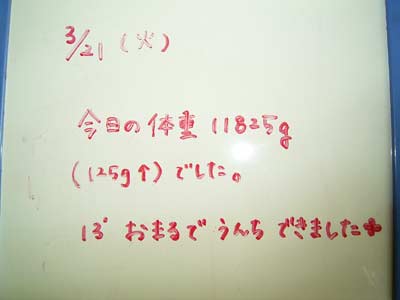 3/21 (火)
今日の体重 11825g
(125g↑)でした。
13° おまるで うんち できました✿